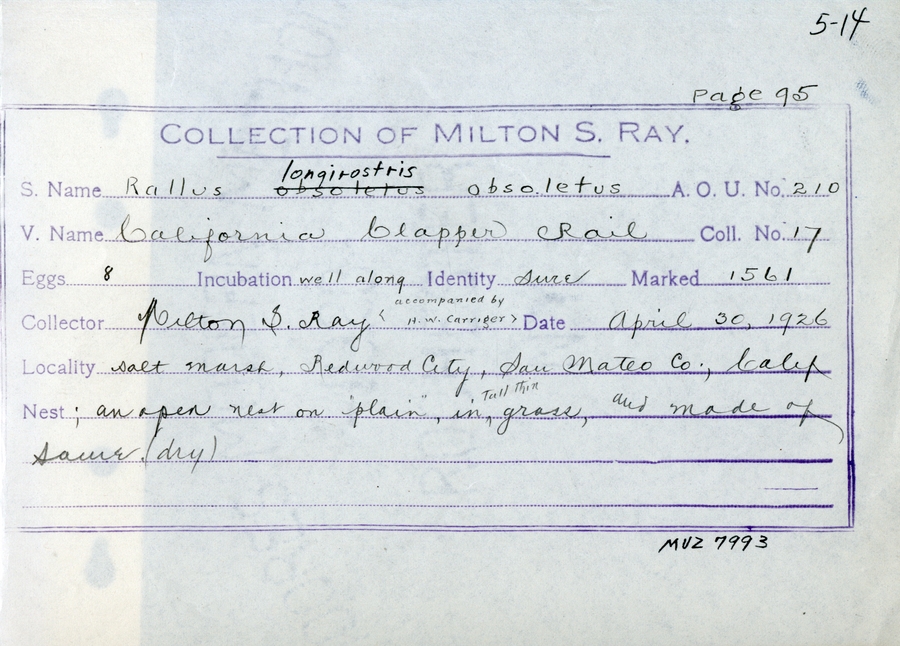 5-14
Page 95
COLLECTION OF MILTON S. RAY.
longirostris
S. Name Rallus obsoletus obsoletus A. O. U. No. 210
V. Name California Clapper Rail Coll. No. 17
Eggs 8 Incubation well along Identity sure Marked 1561
accompanied by
Collector Milton S. Ray < H. W. Carriger > Date April 30, 1926
Locality salt marsh, Redwood City, San Mateo Co., Calif
Tall thin
Nest ; an open nest on "plain", in grass, and made of
same (dry)
MVZ 7993